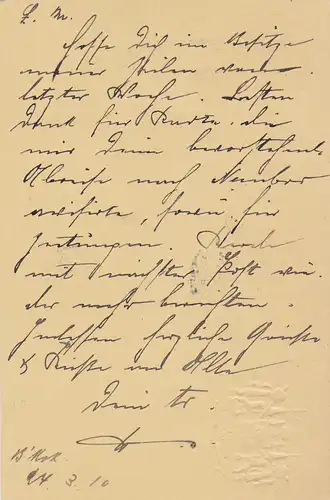 L. M.
Hoffe Dich im Besitze
meiner Zeilen von
letzter Woche. Besten
Dank für Karte, die
mir Deine bevorstehende
Abreise nach
avisirte, sowie für
Zeitungen. Werde
mit nächster Post wie-
der mehr berichten.
Indessen herzliche Grüsse
& Küsse an Alle
Dein tr.
B'kok
24. 3. 10